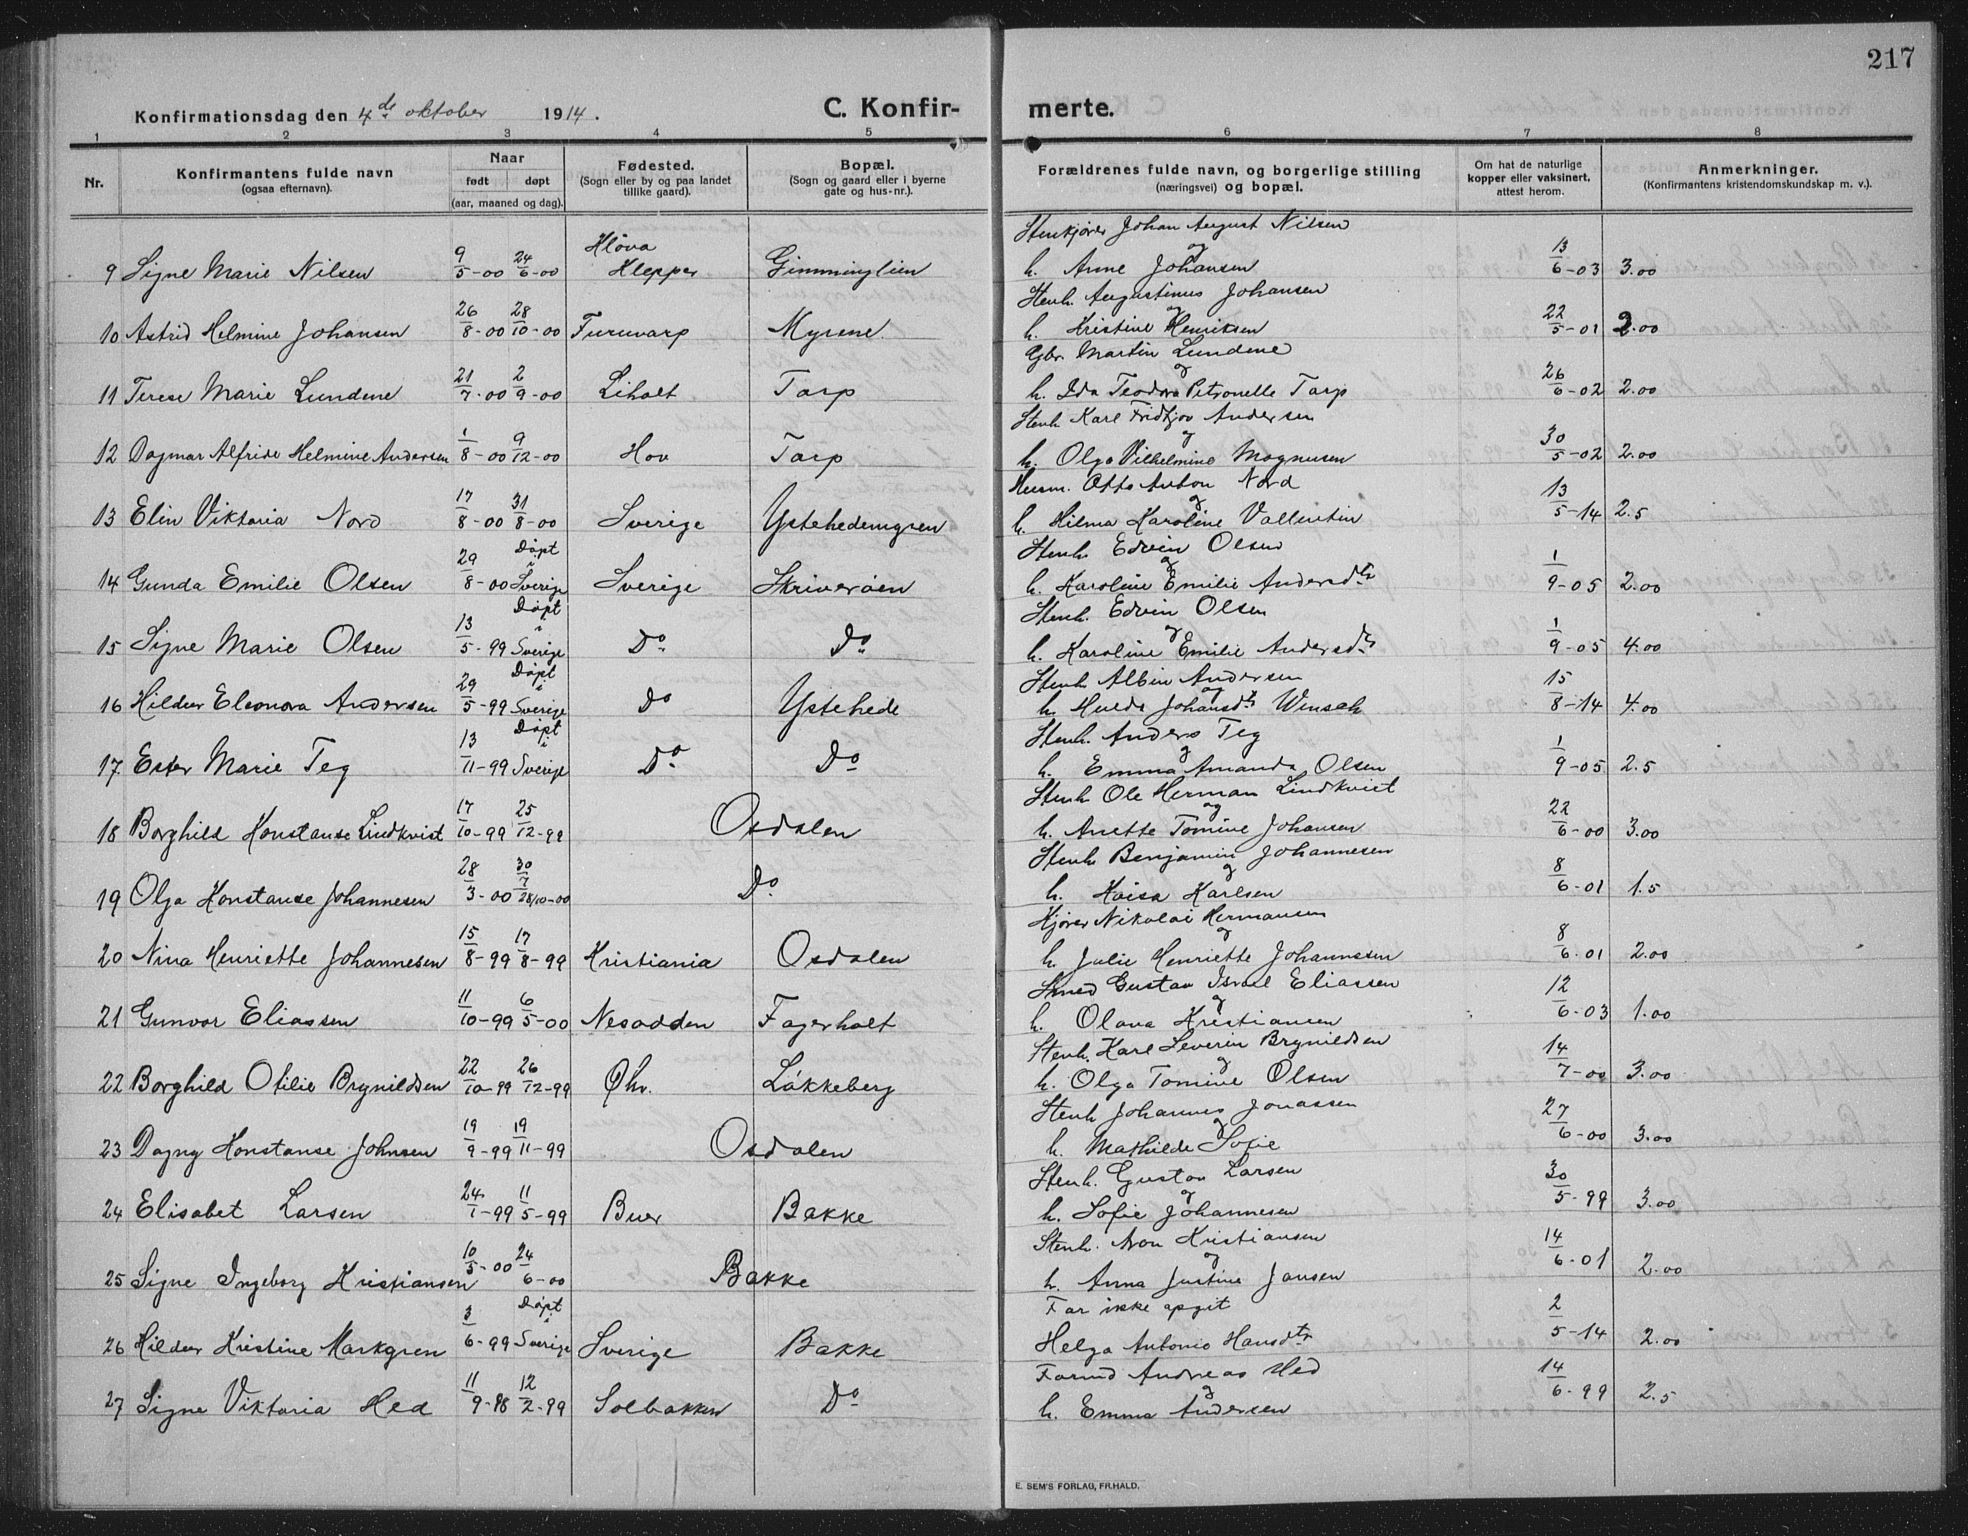 217
Konfirmationsdag den 4de oktober 1914.
C. Konfir-
merte.
1 2 3 4 5 6 7 8
Nr.
Konfirmantens fulde navn
(ogsaa efternavn).
Naar
født døpt
(aar, maaned og dag).
Fødested.
(Sogn eller by og paa landet
tillike gaard).
Bopæl.
(Sogn og gaard eller i byerne
gate og hus-nr.).
Forældrenes fulde navn, og borgerlige stilling
(næringsvei) og bopæl.
Om hat de naturlige
kopper eller vaksinert,
attest herom.
Anmerkninger.
(Konfirmantens kristendomskundskap m. v.).
Stenkjører Johan August Nilsen
9 Signe Marie Nilsen 9/5-00 24/6-00 Kløva Klepper Gimminglien og h. Anne Johansen 13/6-03 3.00
Stenh. Augustinus Johansen
10 Astrid Helmine Johansen 26/8-00 28/10-00 Furuvarp Myrene. og h. Kristine Henriksen 22/5-01 2.00
Gbr. Martin Lundene
11 Terese Marie Lundene 21/7-00 2/9-00 Liholt Torp og h. Ida Teodora Petronelle Torp 26/6-02 2.00
Stenh Karl Fridtjov Andersen
12 Dagmar Alfride Helmine Andersen 1/8-00 9/12-00 Hov Torp og h. Olga Vilhelmine Magnusen 30/5-02 2.00
Husm. Otto Anton Nord
13 Elin Viktoria Nord 17/8-00 31/8-00 Sverige Ystehedemgren og h. Hilma Karoline Vallentin 13/5-14 2.5
Stenh. Edvin Olsen
14 Gunda Emilie Olsen 29/8-00 Døpt i Sverige Sverige Skriverøen og h. Karoline Emilie Andersdtr 1/9-05 2.00
Stenh. Edvin Olsen
15 Signe Marie Olsen 13/5-99 Døpt i Sverige Do Do og h. Karoline Emilie Andersdtr 1/9-05 4.00
Stenh Albin Andersen
16 Hildur Eleonora Andersen 29/5-99 Døpt i Sverige Do Ystehede og h. Hulda Johansdtr 15/8-14 4.00
Stenh. Anders Teg
17. Ester Marie Teg 13/11-99 Døpt i Sverige Do Do og h. Emma Amanda Olsen 1/9-05 2.5
Stenh Ole Herman Lindkvist
18 Borghild Konstanse Lindkvist 17/10-99 25/12-99 Osdalen og h. Anette Tomine Johansen 22/6-00 3.00
Stenh Benjamin Johannesen
19 Olga Konstanse Johannesen 28/3-00 30/7 28/10-00 Do og h. Kaisa Karlsen 8/6-01 1.5
Kjører Nikolai Hermansen
20 Nina Henriette Johannesen 15/8-99 17/8-99 Kristiania Osdalen og h. Julie Henriette Johannesen 8/6.01 2.00
Smed Gustav Israel Eliassen
21 Gunvor Eliassen 11/10-99 6/5-00 Nesodden Fagerholt og h. Olava Kristiansen 12/6-03 1.00
Stenh. Karl Severin Brynildsen
22 Borghild Otilie Brynildsen 22/10-99 26/12-99 Øhr. Løkkeberg og h. Olga Tomine Olsen 14/7-00 3.00
Stenh Johannes Jonassen
23 Dagny Konstanse Johnsen 19/9-99 19/11-99 Osdalen og h. Mathilde Sofie 27/6-00 3.00
Stenh. Gustav Larsen
24 Elisabet Larsen 24/1-99 11/5-99 Buer Bakke og h. Sofie Johannesen 30/5-99 3.00
Stenh. Aron Kristiansen
25 Signe Ingeborg Kristiansen 10/5-00 24/6-00 Bakke og h. Anna Justine Jansen 14/6-01 2.00
Far ikke opgit
26 Hildur Kristine Markgren 3/6-99 Døpt i Sverige Sverige Bakke Helga Antonie Hansdtr 2/5-14 2.00
Andreas Hed
27 Signe Viktoria Hed 11/9-98 12/2-99 Solbakken Do og h. Emma Andersen 14/6-99 2.5
E. SEM'S FORLAG, FR.HALD.